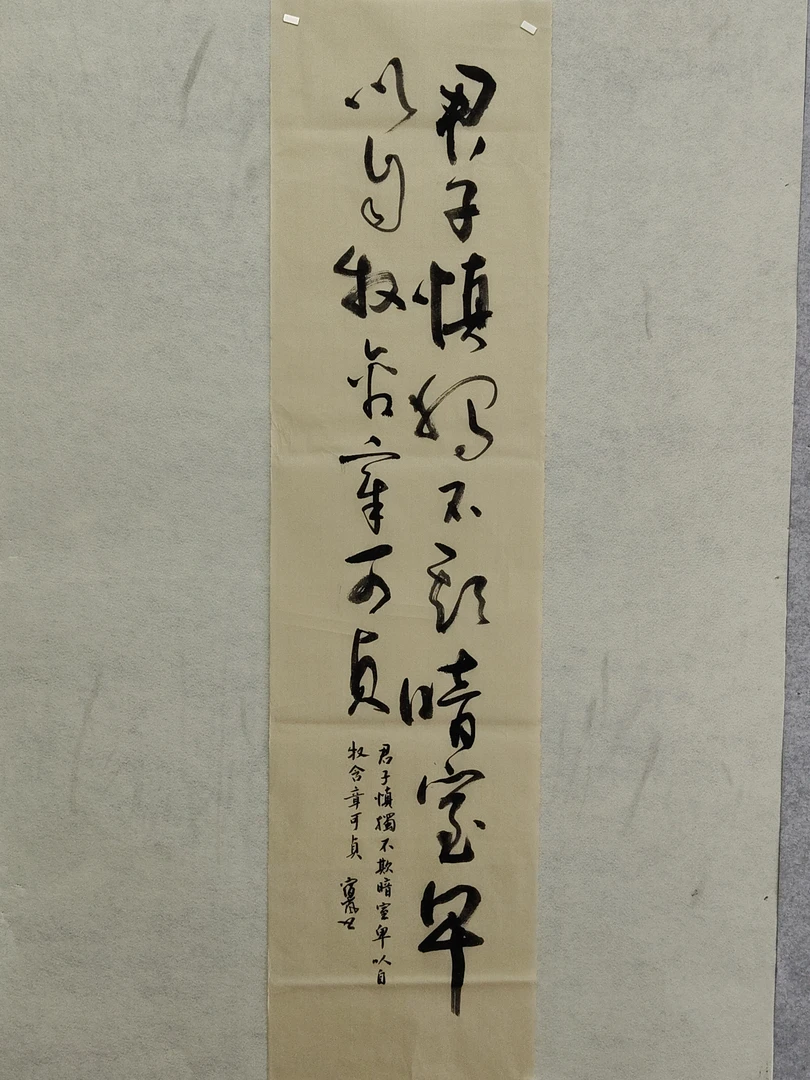 君子慎獨不欺暗室卑
以自牧含章可貞
君子慎獨不欺暗室卑以自
牧含章可貞